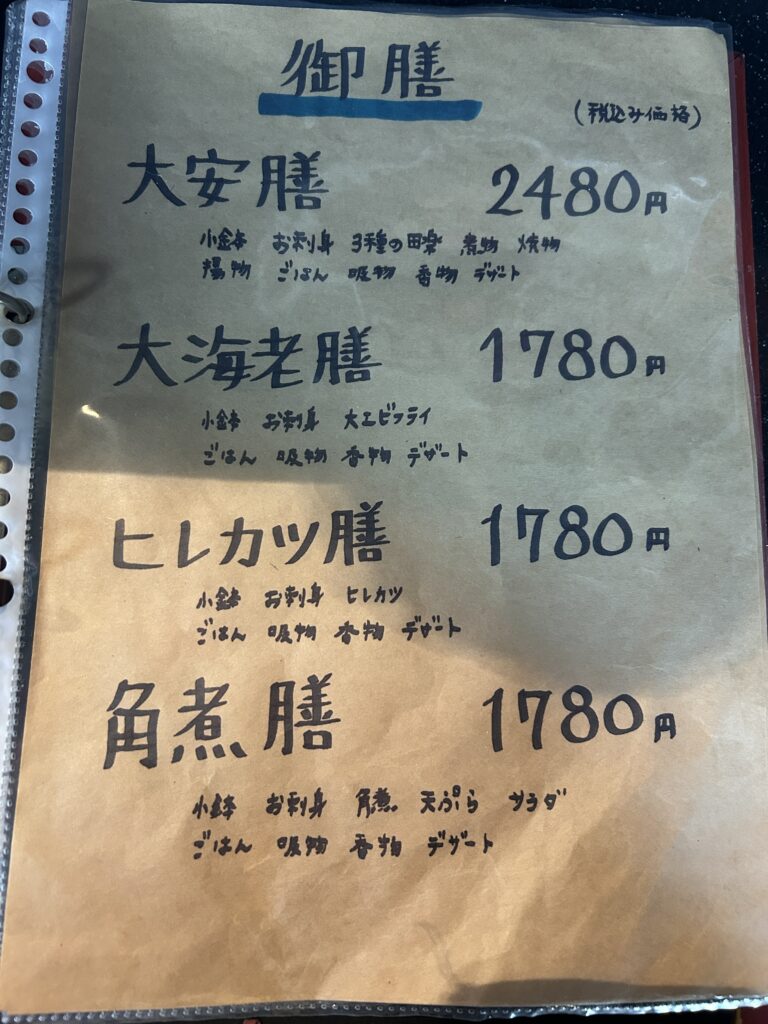 御膳
(税込み価格)
大安膳 2480円
小鉢 お刺身 3種の田楽 煮物 焼物
揚物 ごはん 吸物 香物 デザート
大海老膳 1780円
小鉢 お刺身 大エビフライ
ごはん 吸物 香物 デザート
ヒレカツ膳 1780円
小鉢 お刺身 ヒレカツ
ごはん 吸物 香物 デザート
角煮膳 1780円
小鉢 お刺身 角煮 天ぷら サラダ
ごはん 吸物 香物 デザート